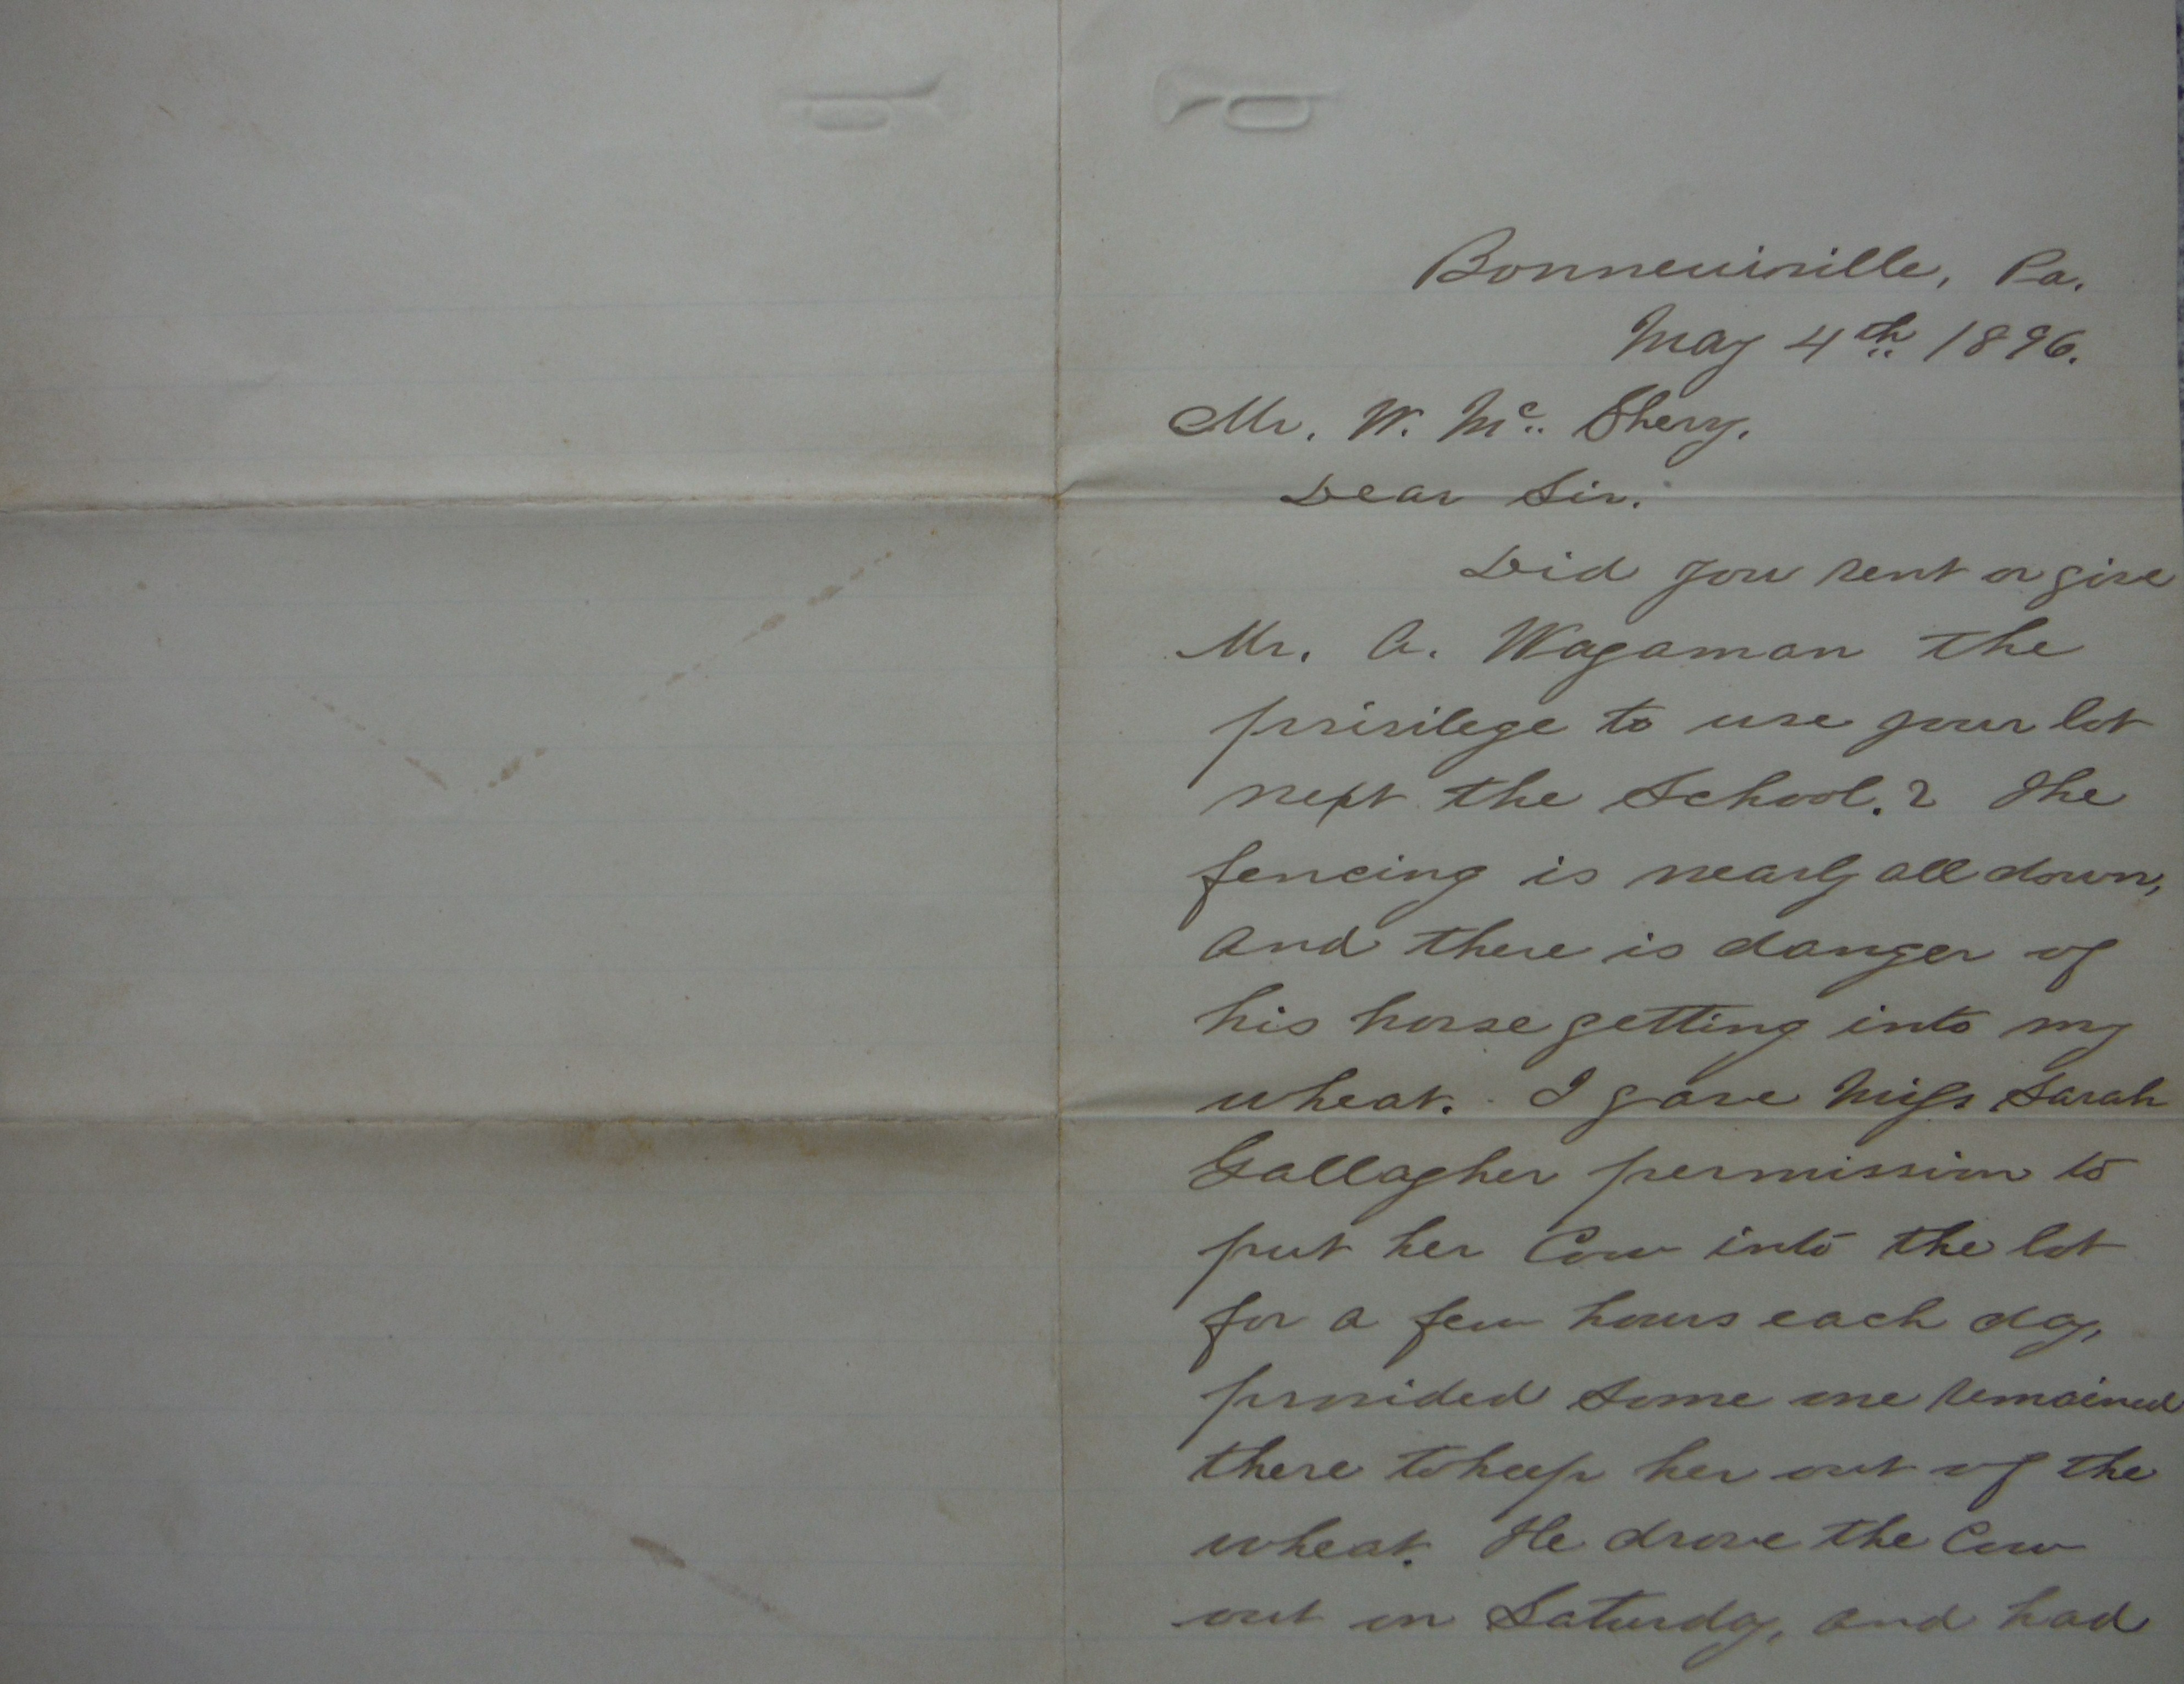 Bonneuiville, Pa.
May 4th 1896.
Mr. W. Mc. Shery.
Dear Sir:
Did you rent or give
Mr. A. Wagaman the
privilege to use your lot
next the School.? The
fencing is nearly all down,
and there is danger of
his horse getting into my
wheat. I gave Miss Sarah
Gallagher permission to
put her Cow into the lot
for a few hours each day,
provided some one remained
there to keep her out of the
wheat. He drove the Cow
out on Saturday, and had